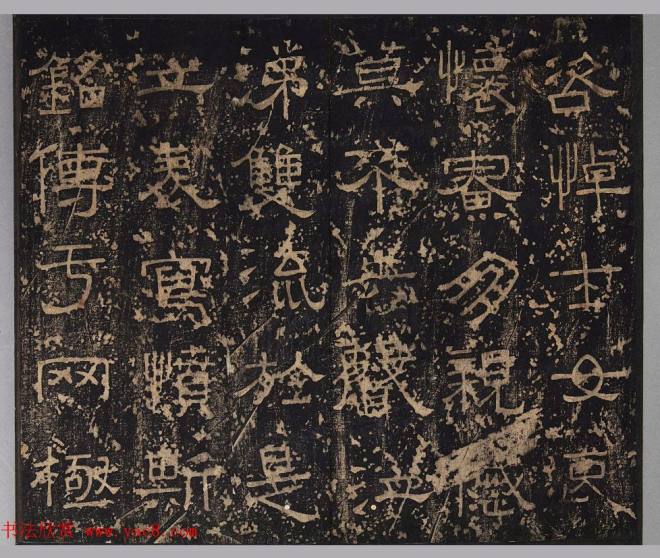 咨悼士女
懷多親
莫不聲
涕雙流於是
立表寫憤斯
銘傳于罔極
书法欣赏 www.yac8.com